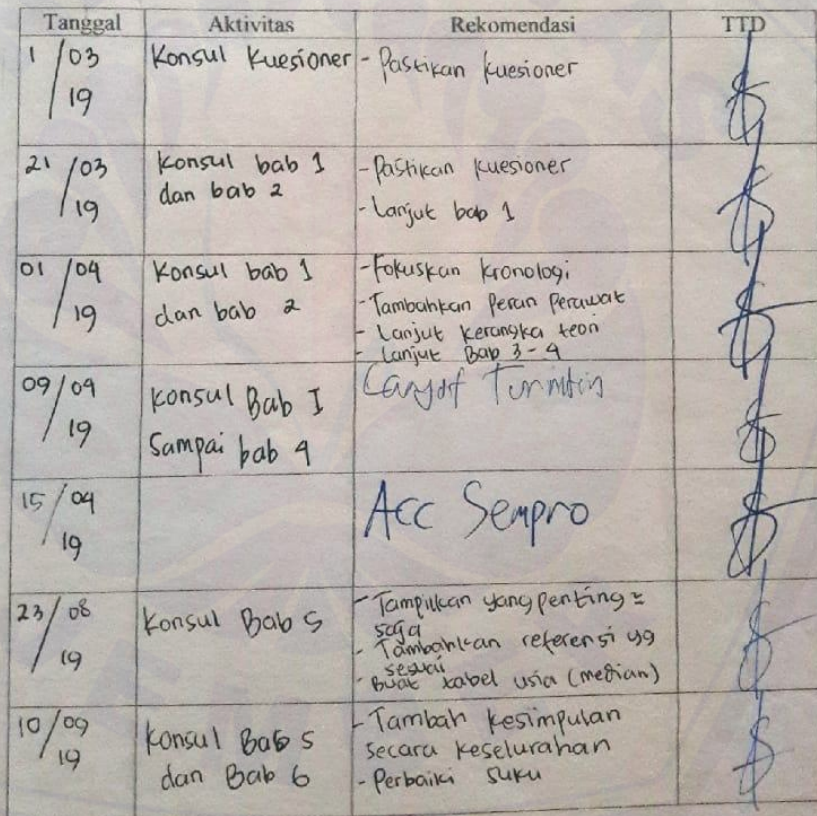 Tanggal Aktivitas Rekomendasi TTD
1/03/19 Konsul Kuesioner - Pastikan kuesioner
21/03/19 Konsul bab 1 - Pastikan kuesioner
dan bab 2 - Lanjut bab 1
01/04/19 Konsul bab 1 - Fokuskan kronologi
dan bab 2 - Tambahkan Peran Perawat
- Lanjut kerangka teori
- Lanjut Bab 3-4
09/04/19 Konsul Bab I
Sampai bab 4
15/04/19 Acc Sempro
23/08/19 Konsul Bab 5 - Tampilkan yang penting =
saja
- Tambahkan referensi yg
sesuai
- Buat tabel usia (median)
10/09/19 Konsul Bab 5 - Tambah kesimpulan
dan Bab 6 secara keselurahan
- Perbaiki suku